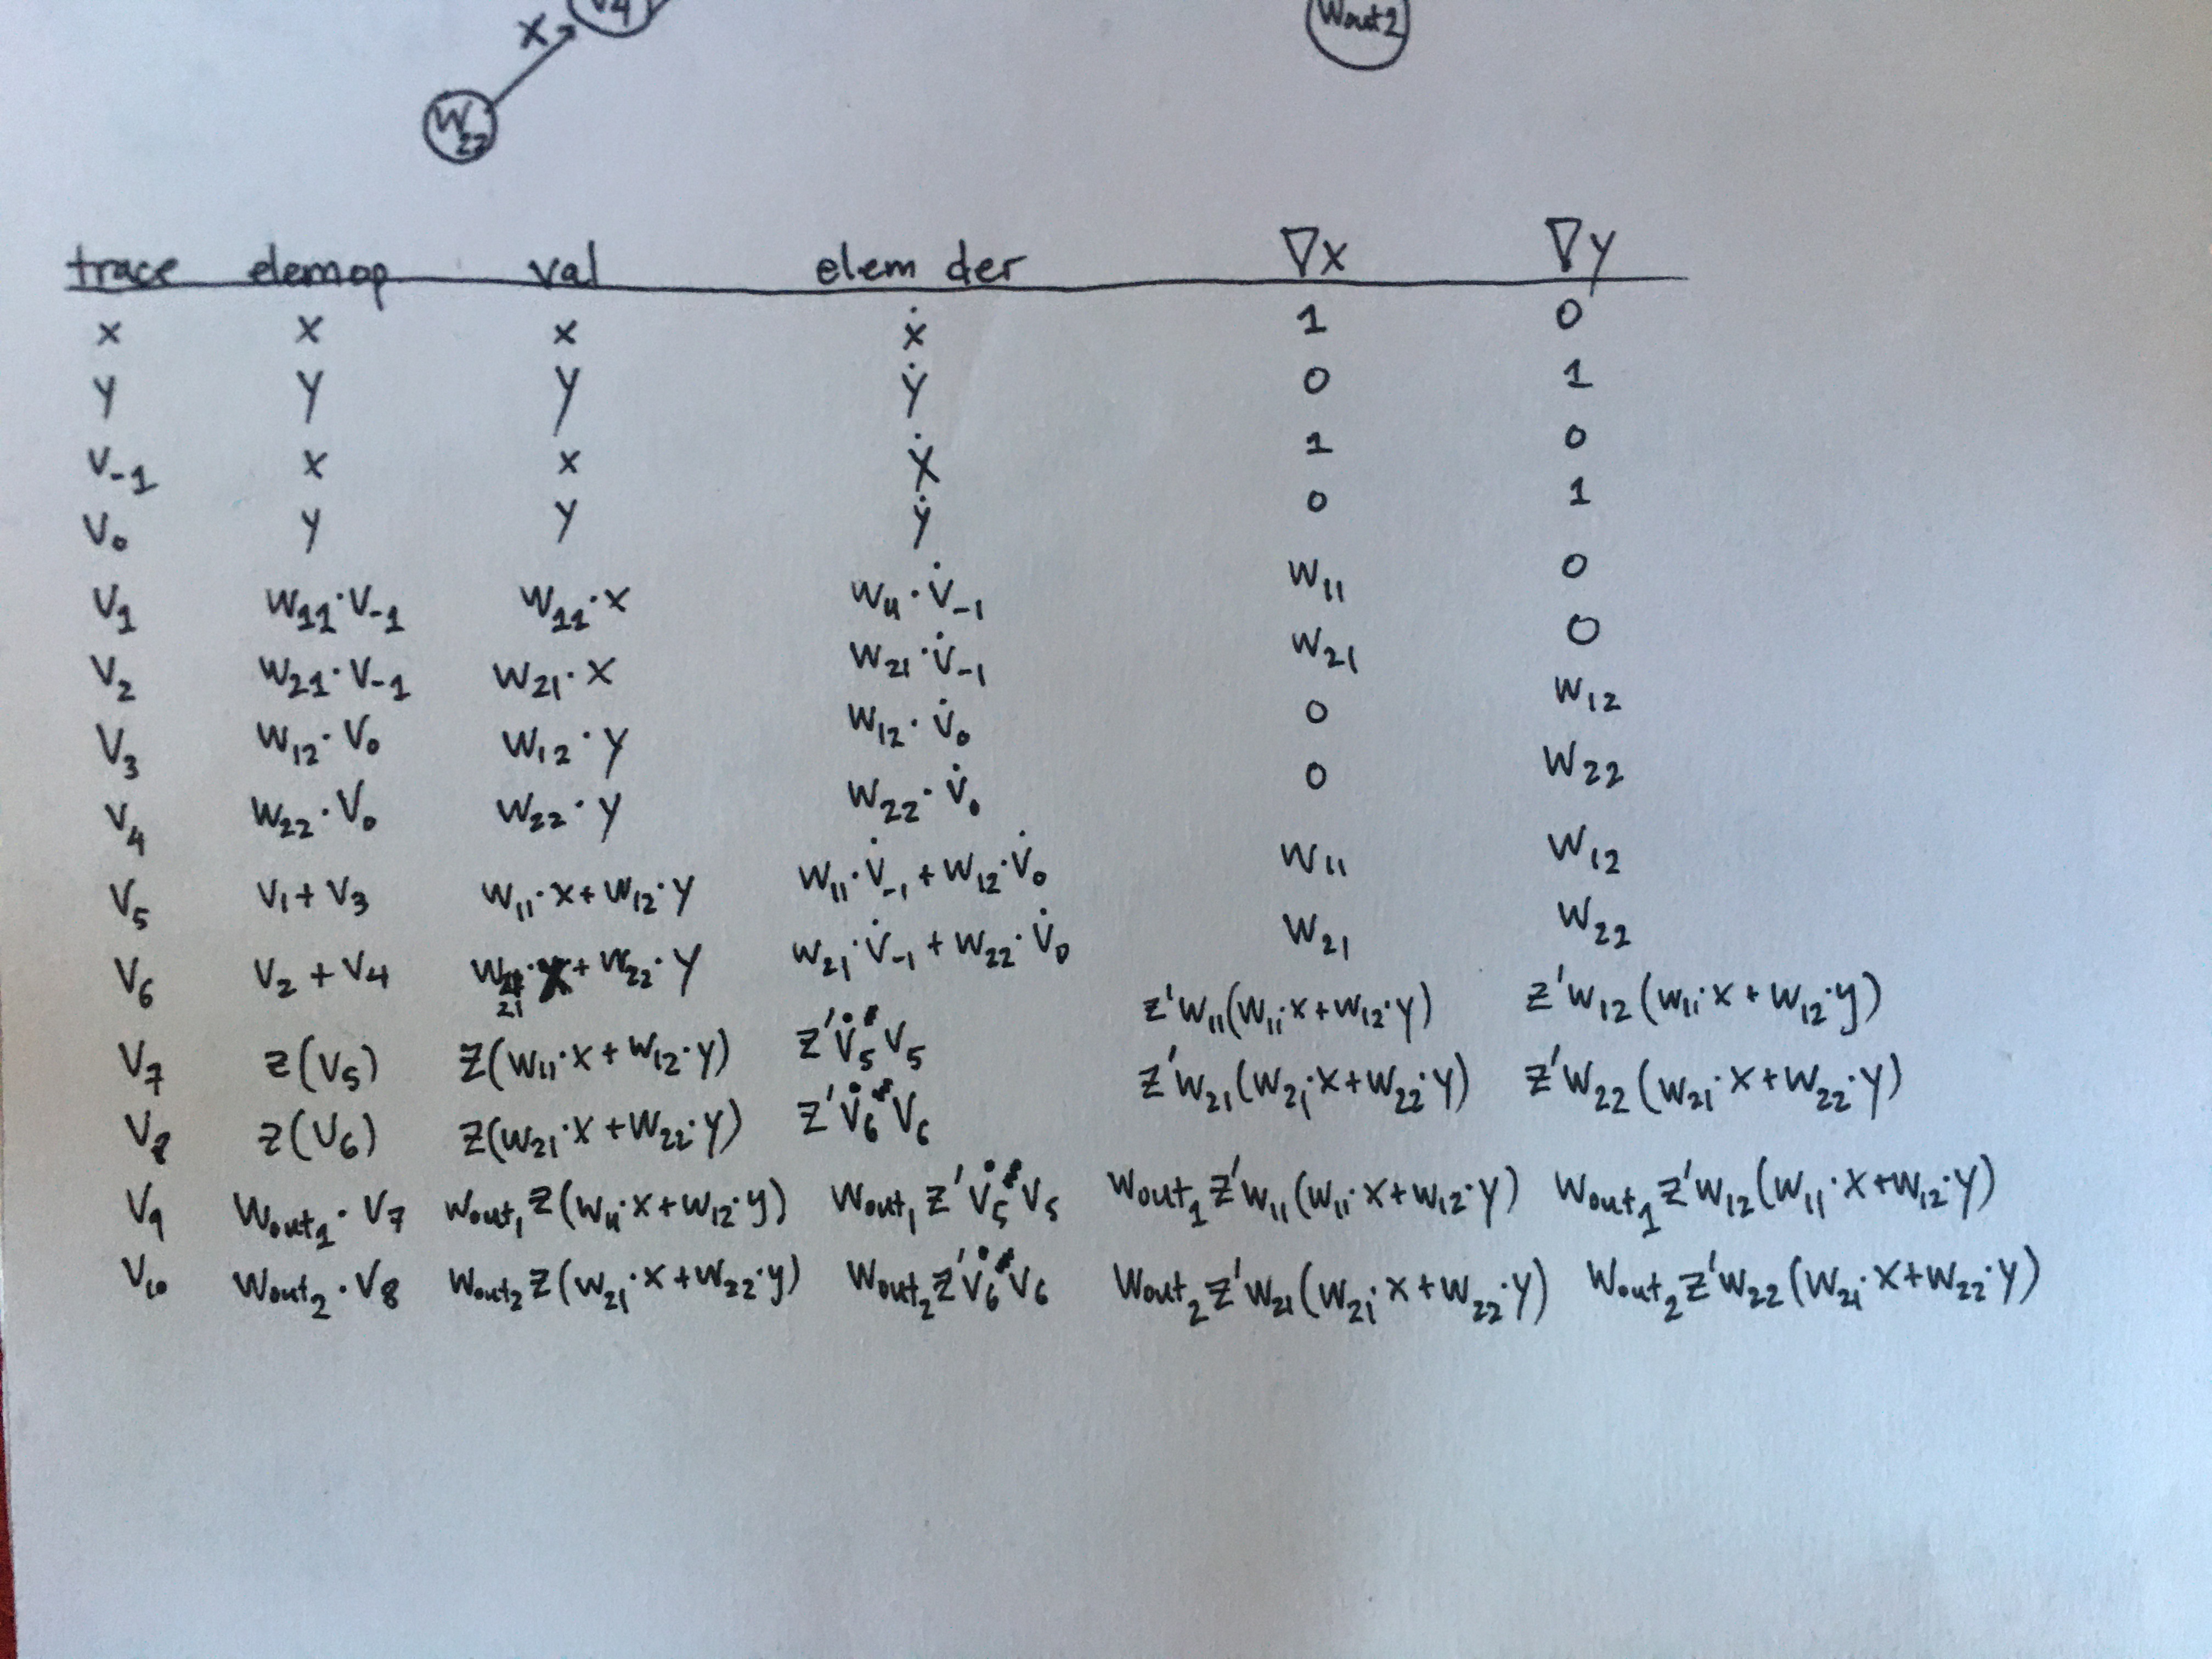 W22 X V4 Wout2
trace elemop val elem der ∇x ∇y
x x x ẋ 1 0
y y y ẏ 0 1
V-1 x x ẋ 1 0
V0 y y ẏ 0 1
V1 W11·V-1 W11·x W11·V̇-1 W11 0
V2 W21·V-1 W21·x W21·V̇-1 W21 0
V3 W12·V0 W12·y W12·V̇0 0 W12
V4 W22·V0 W22·y W22·V̇0 0 W22
V5 V1+V3 W11·x+W12·y W11·V̇-1+W12·V̇0 W11 W12
V6 V2+V4 W21·x+W22·y W21·V̇-1+W22·V̇0 W21 W22
V7 z(V5) z(W11·x+W12·y) z'V̇5V5 z'W11(W11·x+W12·y) z'W12(W11·x+W12·y)
V8 z(V6) z(W21·x+W22·y) z'V̇6V6 z'W21(W21·x+W22·y) z'W22(W21·x+W22·y)
V9 Wout1·V7 Wout1z(W11·x+W12·y) Wout1z'V̇5V5 Wout1z'W11(W11·x+W12·y) Wout1z'W12(W11·x+W12·y)
V10 Wout2·V8 Wout2z(W21·x+W22·y) Wout2z'V̇6V6 Wout2z'W21(W21·x+W22·y) Wout2z'W22(W21·x+W22·y)